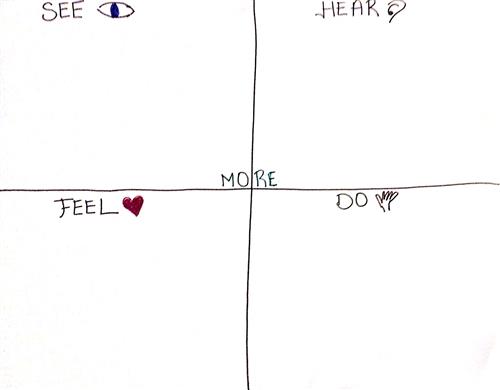 SEE
HEAR
MORE
FEEL
DO